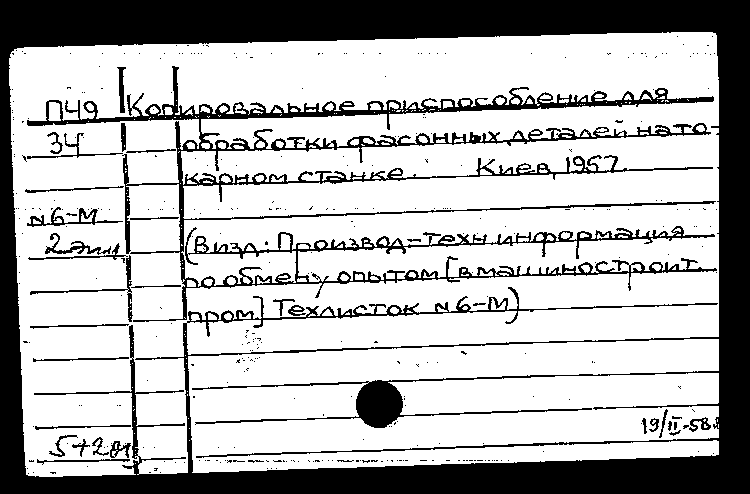 П49 Копировальное приспособление для
34 обработки фасонных деталей на то-
карном станке. Киев, 1957.
№6-М
2 экз (В изд: Производ-техн информация
по обмену опытом [в машиностроит.
пром.] Техлисток №6-М)
19/II-58.
5+2